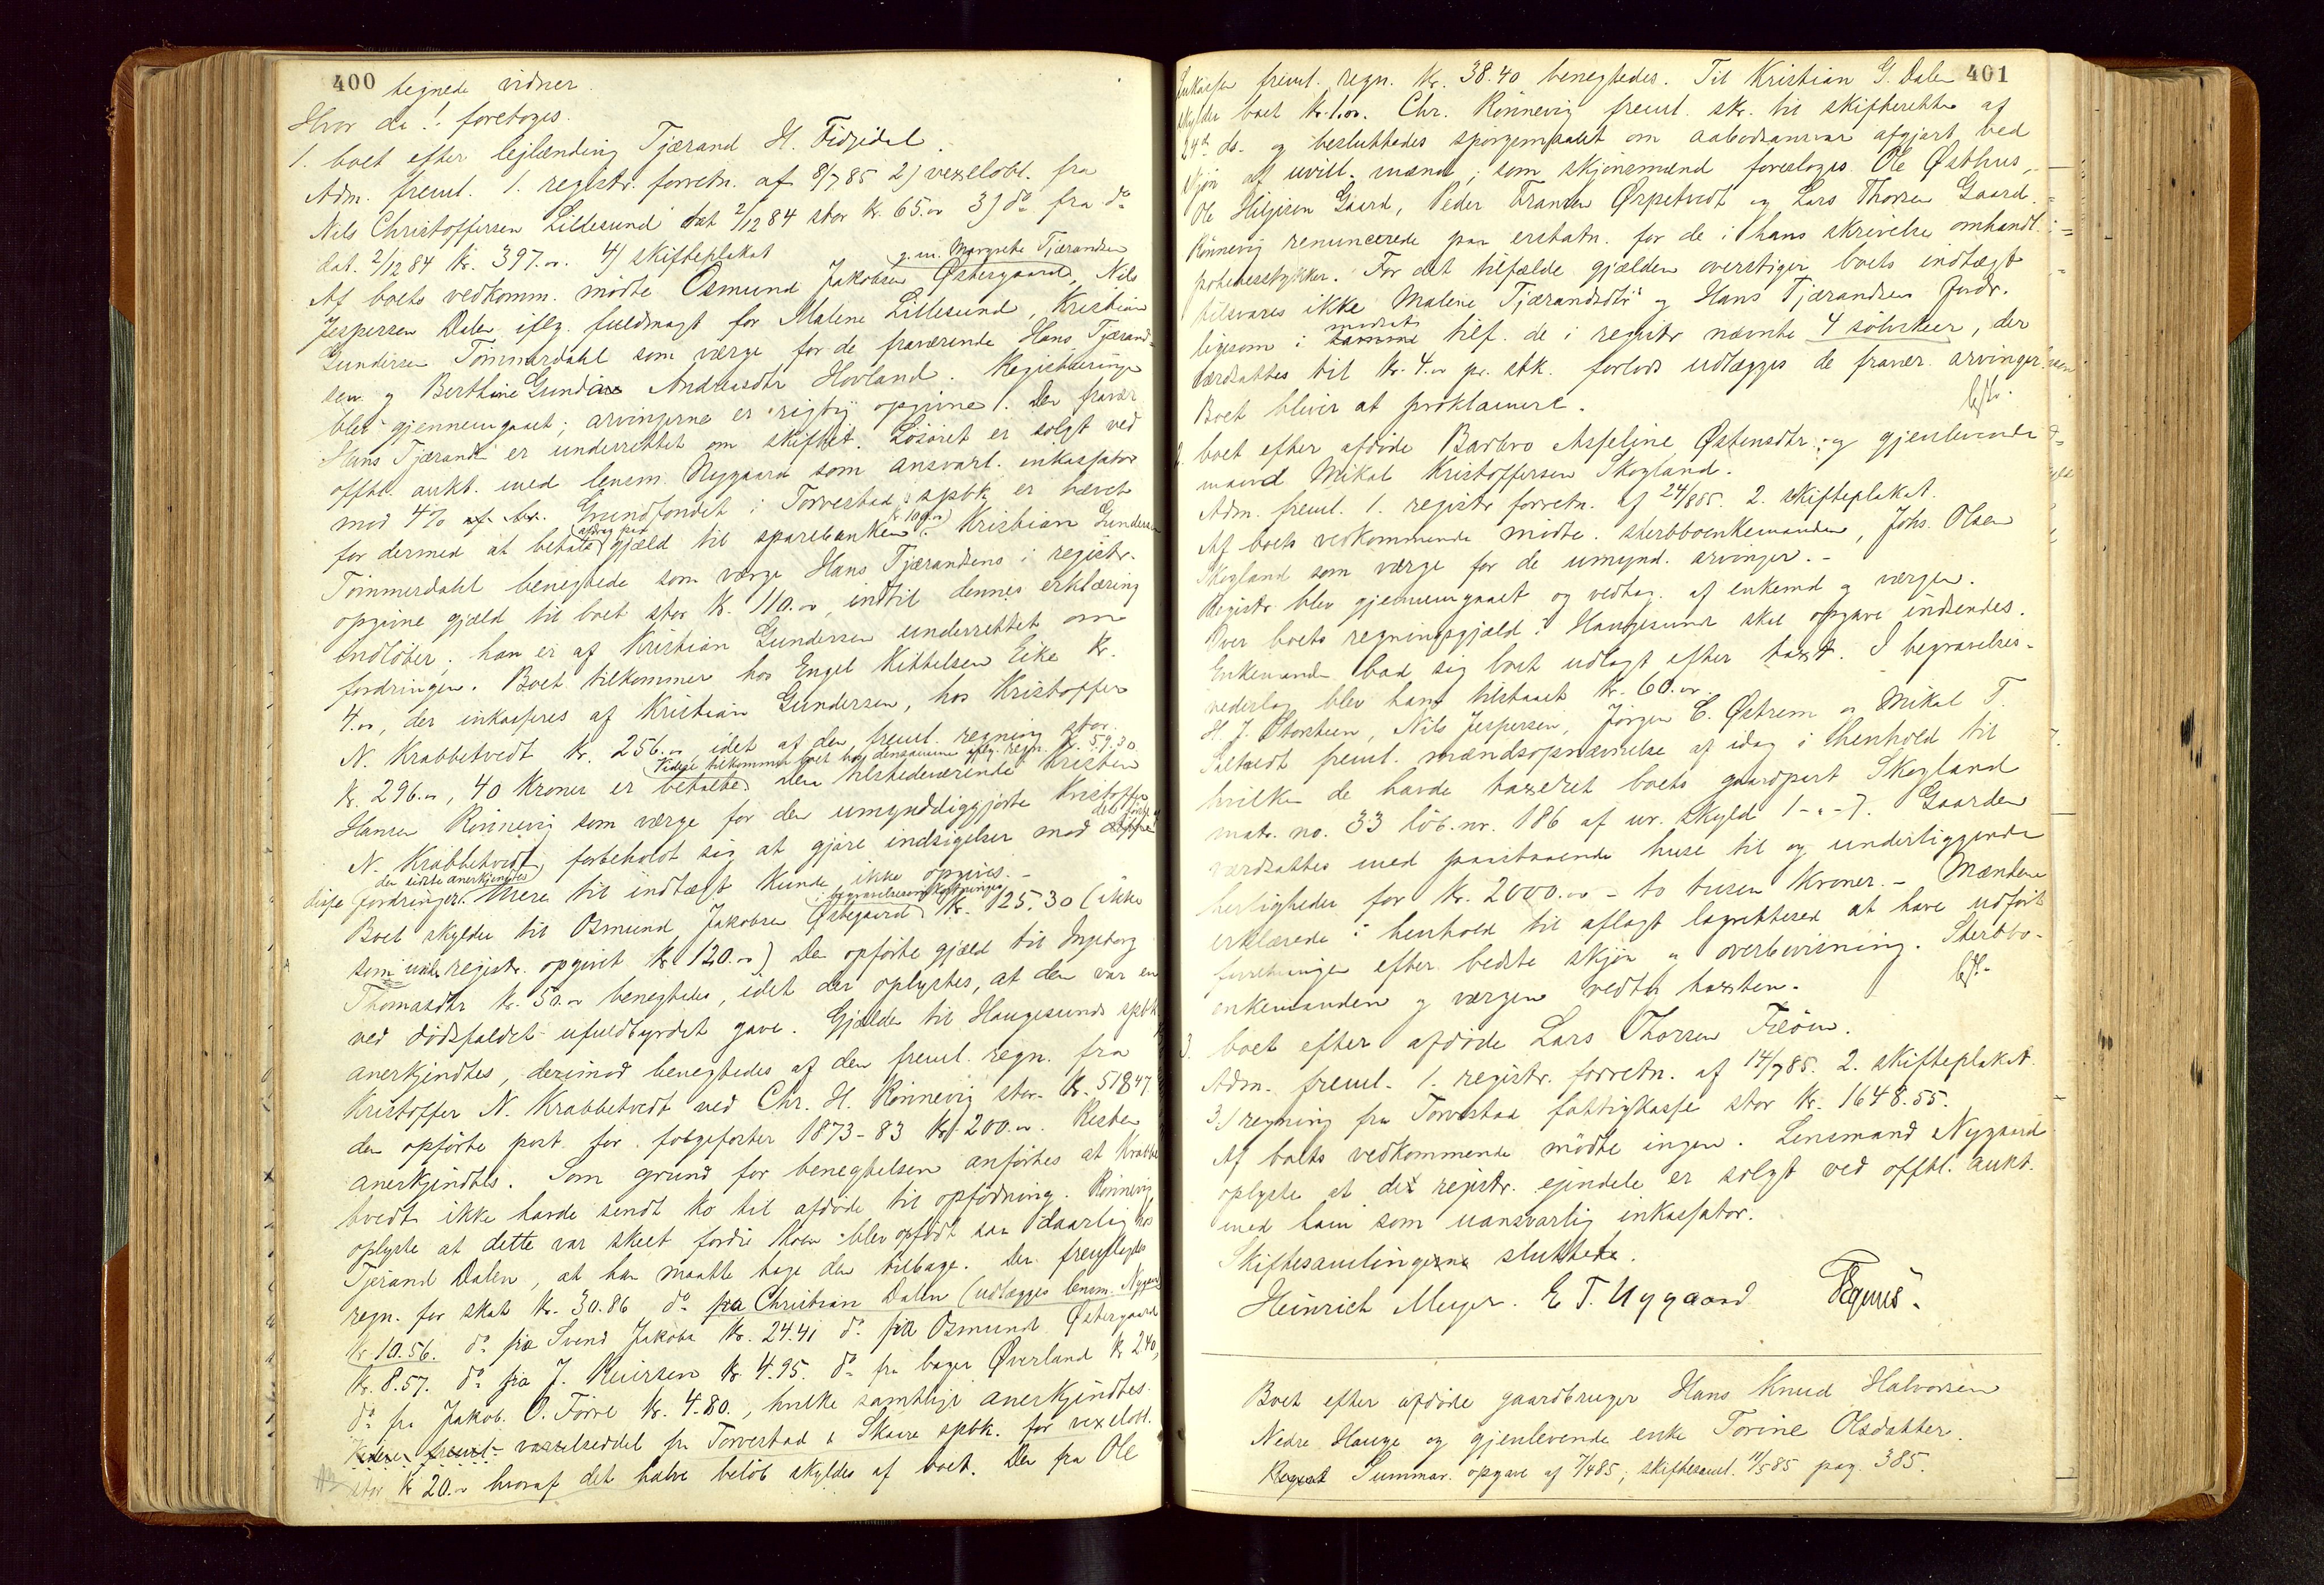 400 tegnede vidner.
Hvor da! foretoges.
1. boet efter lejlænding Tjærand H. Fidjedal.
Adm. freml. 1. registr. forretn. af 8/7 85 2) vexelobl. fra
Nils Christoffersen Lillesund dat 2/12 84 stor kr. 65.00 3) do fra do
dat. 2/12 84 kr. 397.00. 4) skifteplakat
g. m. Margrete Tjærandsen
Af boets vedkomm. mødte Osmund Jakobsen Østergaard, Nils
Jespersen Dalen iflg. fuldmagt for Malene Lillesund, Kristian
Gundersen Tømmerdahl som værge for de fraværende Hans Tjærand-
sen og Berthine Gundine Andreasdtr Hovland. Registreringen
blev gjennemgaaet; arvingerne er rigtig opgivne. Den fravær.
Hans Tjærands. er underrettet om skiftet. Løsøret er solgt ved
offtl. aukt. med lensm. Nygaard som ansvarl. inkassator
mod 4% af br. Grundfondet i Torvestad spbk. er hævet
for dermed at betale gjæld til sparebanken kr 100.00. Kristian Gundersen
Tømmerdahl benegtede som værge Hans Tjærandsens i registr.
opgivne gjæld til boet stor kr. 110.00, indtil dennes erklæring
indløber; han er af Kristian Gundersen underrettet om
fordringen. Boet tilkommer hos Engel Kittelsen Eike kr.
4.00, der inkasseres af Kristian Gundersen, hos Kristoffer
N. Krabbetvedt kr. 256.00, idet af den freml. regning stor
Videre tilkommer boet hos densamme iflg. regn. kr. 59,30.
kr. 296.00, 40 Kroner er betalte. Den tilstedeværende Kristen
Hansen Rønnevig som værge for den umyndiggjorte Kristoffer
N. Krabbetvedt, forbeholdt sig at gjøre indsigelser mod
den sidste anerkjendtes
disse fordringer. Mere til indtægt kunde ikke opgives. -
begravelsesomkostninger
Boet skylder til Osmund Jakobsen Østegaard kr. 125.30 (ikke
som under registr. opgivet kr. 120.00) Den opførte gjæld til Ingeborg
Thomasdtr kr. 50.00 benegtedes, idet der oplystes, at den var en
ved dødsfaldet ufuldbyrdet gave. Gjælden til Haugesunds spbk
anerkjendtes, derimod benegtedes af den freml. regn. fra
Kristoffer N. Krabbetvedt ved Chr. H. Rønnevig stor kr. 518,47
den opførte post for folgefoster 1873-83 kr. 200.00. Resten
anerkjendtes. Som grund for benegtelsen anførtes at Krabbe
tvedt ikke havde sendt ko til afdøde til opfødning. Rønnevig
oplyste at dette var skeet fordi koen blev opfødt saa daarlig hos
Tjerand Dalen, at han maatte tage den tilbage. Der fremlagdes
regn. for skat kr. 30.86 do fra Christian Dalen (udlægges lensm. Nygaard
kr 10.56. do fra Svend Jakobs. kr. 24.41 do fra Osmund Østergaard
kr. 8.57. do fra J. Knutsen kr 4.95. do fra bager Øverland kr 2.40,
do fra Jakob. O. Førre kr. 4.80., hvilke samtlige anerkjendtes.
Videre freml. vexelseddel fra Torvestad & Skaare spbk. for vexelobl.
stor kr 20.00 hvoraf det halve beløb skyldes af boet. Den fra Ole
401
freml. regn. kr. 38.40 benegtedes. Til Kristian G. Dalen
skylder boet kr. 1.00. Chr. Rønnevig freml. skr. til skifteretten af
24de ds. og besluttedes spørgsmaalet om aabodsansvar afgjort ved
skjøn af uvill. mænd; som skjønsmænd foresloges Ole Østhus,
Ole Hiljesen Gaard, Peder Transen Ørpetvedt og Lars Thorsen Gaard.
Rønnevig renuncerede paa erstatn. for de i hans skrivelse omhandl.
potetesstykker. For det tilfælde gjælden overstiger boets indtægt
tilsvares ikke Malene Tjærandsdtr og Hans Tjærandsens fordr.
modsat
ligesom i samme tilf. de i registr nævnte 4 sølvskeer, der
værdsattes til kr. 4.00 pr. stk. forlods udlægges de fravær. arvinger
Boet bliver at proklamere.
2. boet efter afdøde Barbro Asseline Østensdtr. og gjenlevende
mand Mikal Kristoffersen Skogland.
Adm. freml. 1. registr forretn. af 24/8 85. 2. skifteplakat.
Af boets vedkommende mødte. sterbboenkemanden, Johs. Olsen
Skogland som værge for de umynd. arvinger. -
Registr. blev gjennemgaaet og vedtag. af enkemd og værgen.
Over boets regningsgjæld i Haugesund skal opgave indsendes.
Enkemanden bad sig boet udlagt efter taxt. I begravelses-
vederlag blev ham tilstaaet kr. 60.00.
H. J. Storsteen, Nils Jespersen, Jørgen E. Østrem og Mikal T.
Saltvedt freml. mændsopnævnelse af idag i henhold til
hvilken de havde taxeret boets gaardpart Skogland
matr. no. 33 løb. nr. 186 af ur. skyld 1 - " - 7. Gaarden
værdsattes med paastaaende huse til og underliggende
herligheder for kr. 2000.00 - to tusen kroner. - Mændene
erklærede i henhold til aflagt lagretteed at have udført
forretningen efter bedste skjøn og overbevisning. Sterbbo-
enkemanden og værgen vedtog taxten.
3. boet efter afdøde Lars Thorsen Feøen.
Adm. freml. 1. registr. forretn. af 14/7 85. 2. skifteplakat.
3) regning fra Torvestad fattigkasse stor kr. 1648.55.
Af boets vedkommende mødte ingen. Lensmand Nygaard
oplyste at de registr. ejendele er solgt ved offtl. aukt.
med ham som uansvarlig inkassator.
Skiftesamlingerne sluttede.
Heinrich Meyer. E T. Nygaard
Boet efter afdøde gaardbruger Hans Knud Halvorsen
Nedre Hauge og gjenlevende enke Torine Olsdatter.
Summar. opgave af 7/4 85; skiftesaml. 11/5 85 pag. 385.